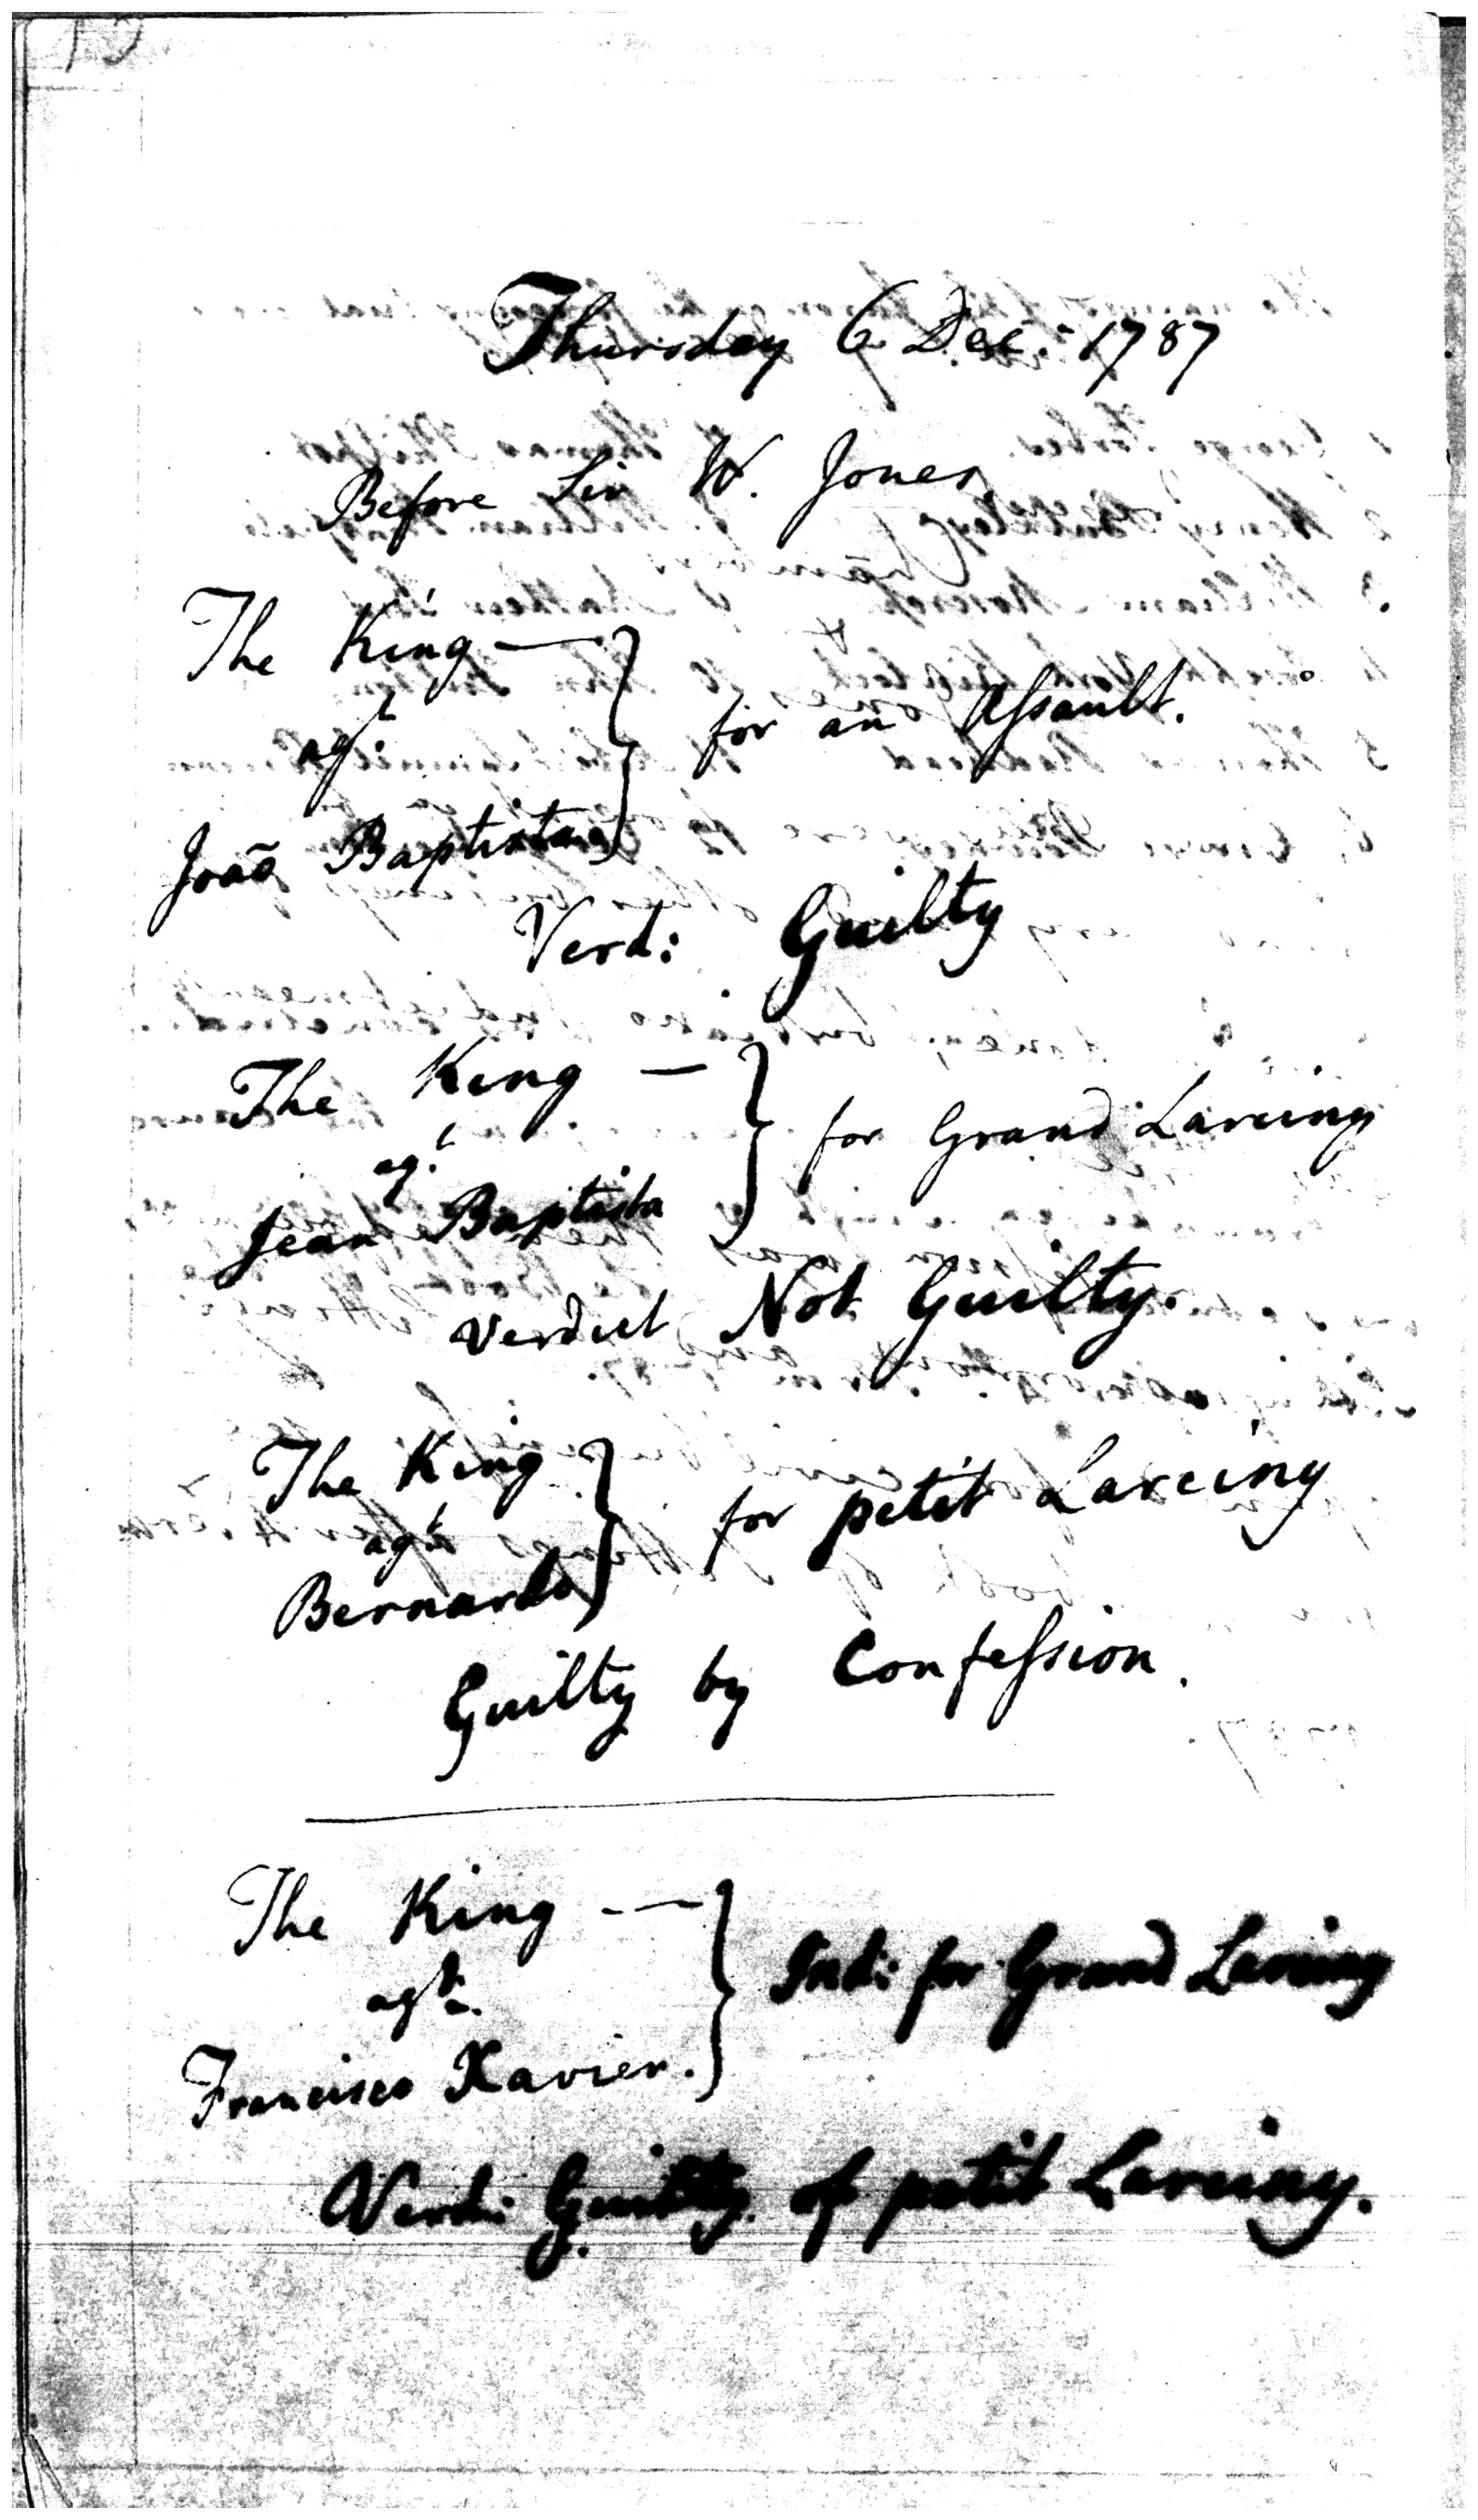 Thursday 6 Dec. 1787
Before Sir W. Jones.
The King —
agt
Joaõ Baptista } for an Assault.
Verd: Guilty
The King —
agt
Jean Baptista } for Grand Larciny
Verdict Not Guilty.
The King
agt
Bernardo } for petit Larciny
Guilty by Confession.
The King —
agst
Francisco Xavier. } Ind: for Grand Larciny
Verd: Guilty of petit Larciny.